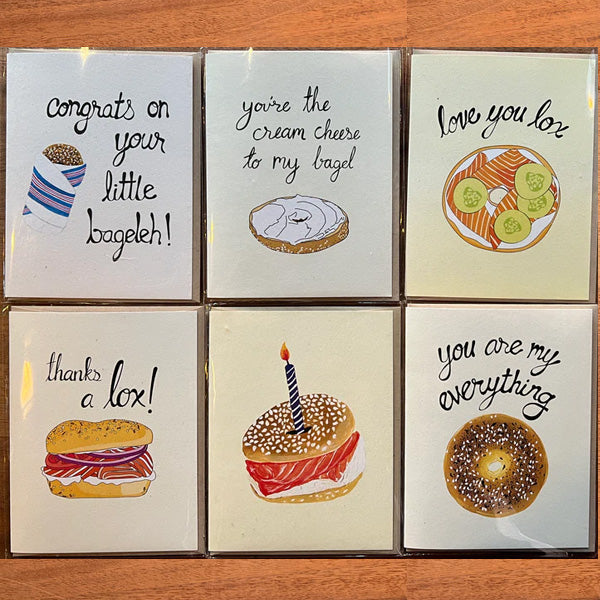 congrats on
your
little
bageleh!
you're the
cream cheese
to my bagel
love you lox
thanks
a lox!
you are my
everything